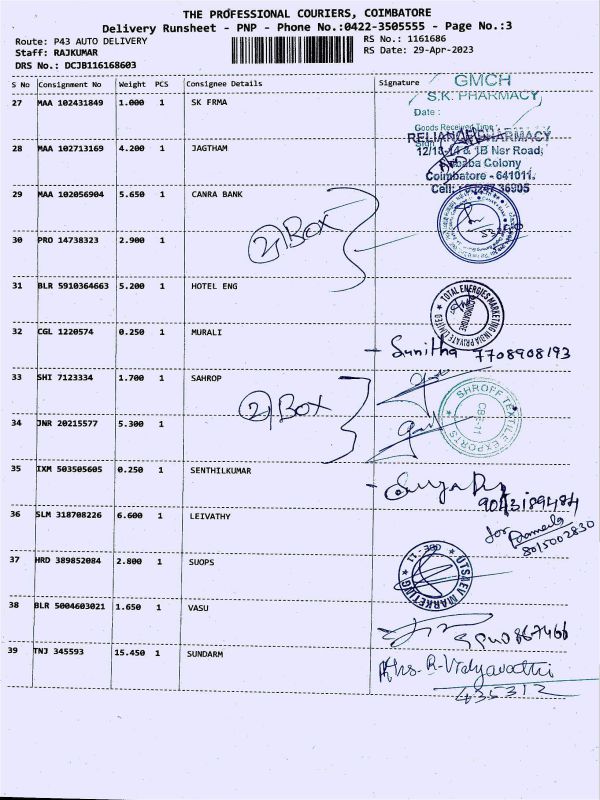 THE PROFESSIONAL COURIERS, COIMBATORE
Delivery Runsheet - PNP - Phone No.:0422-3505555 - Page No.:3
Route: P43 AUTO DELIVERY RS No.: 1161686
Staff: RAJKUMAR RS Date: 29-Apr-2023
DRS No.: DCJB116168603
S No Consignment No Weight PCS Consignee Details Signature
GMCH
27 MAA 102431849 1.000 1 SK FRMA S.K. PHARMACY
Date :
Goods Received Time :
RELIANCE PHARMACY
28 MAA 102713169 4.200 1 JAGTHAM 12/13-14 & 1B Nsr Road,
Saibaba Colony
Coimbatore - 641011.
29 MAA 102056904 5.650 1 CANRA BANK
2 Box
30 PRO 14738323 2.900 1
31 BLR 5910364663 5.200 1 HOTEL ENG
TOTAL ENERGIES MARKETING INDIA PRIVATE LIMITED
COIMBATORE
32 CGL 1220574 0.250 1 MURALI
- Sunitha 7708908193
33 SHI 7123334 1.700 1 SAHROP
2 Box
SHROFF TEXTILE EXPORTS
CBE-11
34 JNR 20215577 5.300 1
35 IXM 503505605 0.250 1 SENTHILKUMAR
36 SLM 318708226 6.600 1 LEIVATHY
for
8015002830
37 HRD 389852084 2.800 1 SUOPS
UTSAEV MARKETING
38 BLR 5004603021 1.650 1 VASU
39 TNJ 345593 15.450 1 SUNDARM
R-Vidyavathi
435312